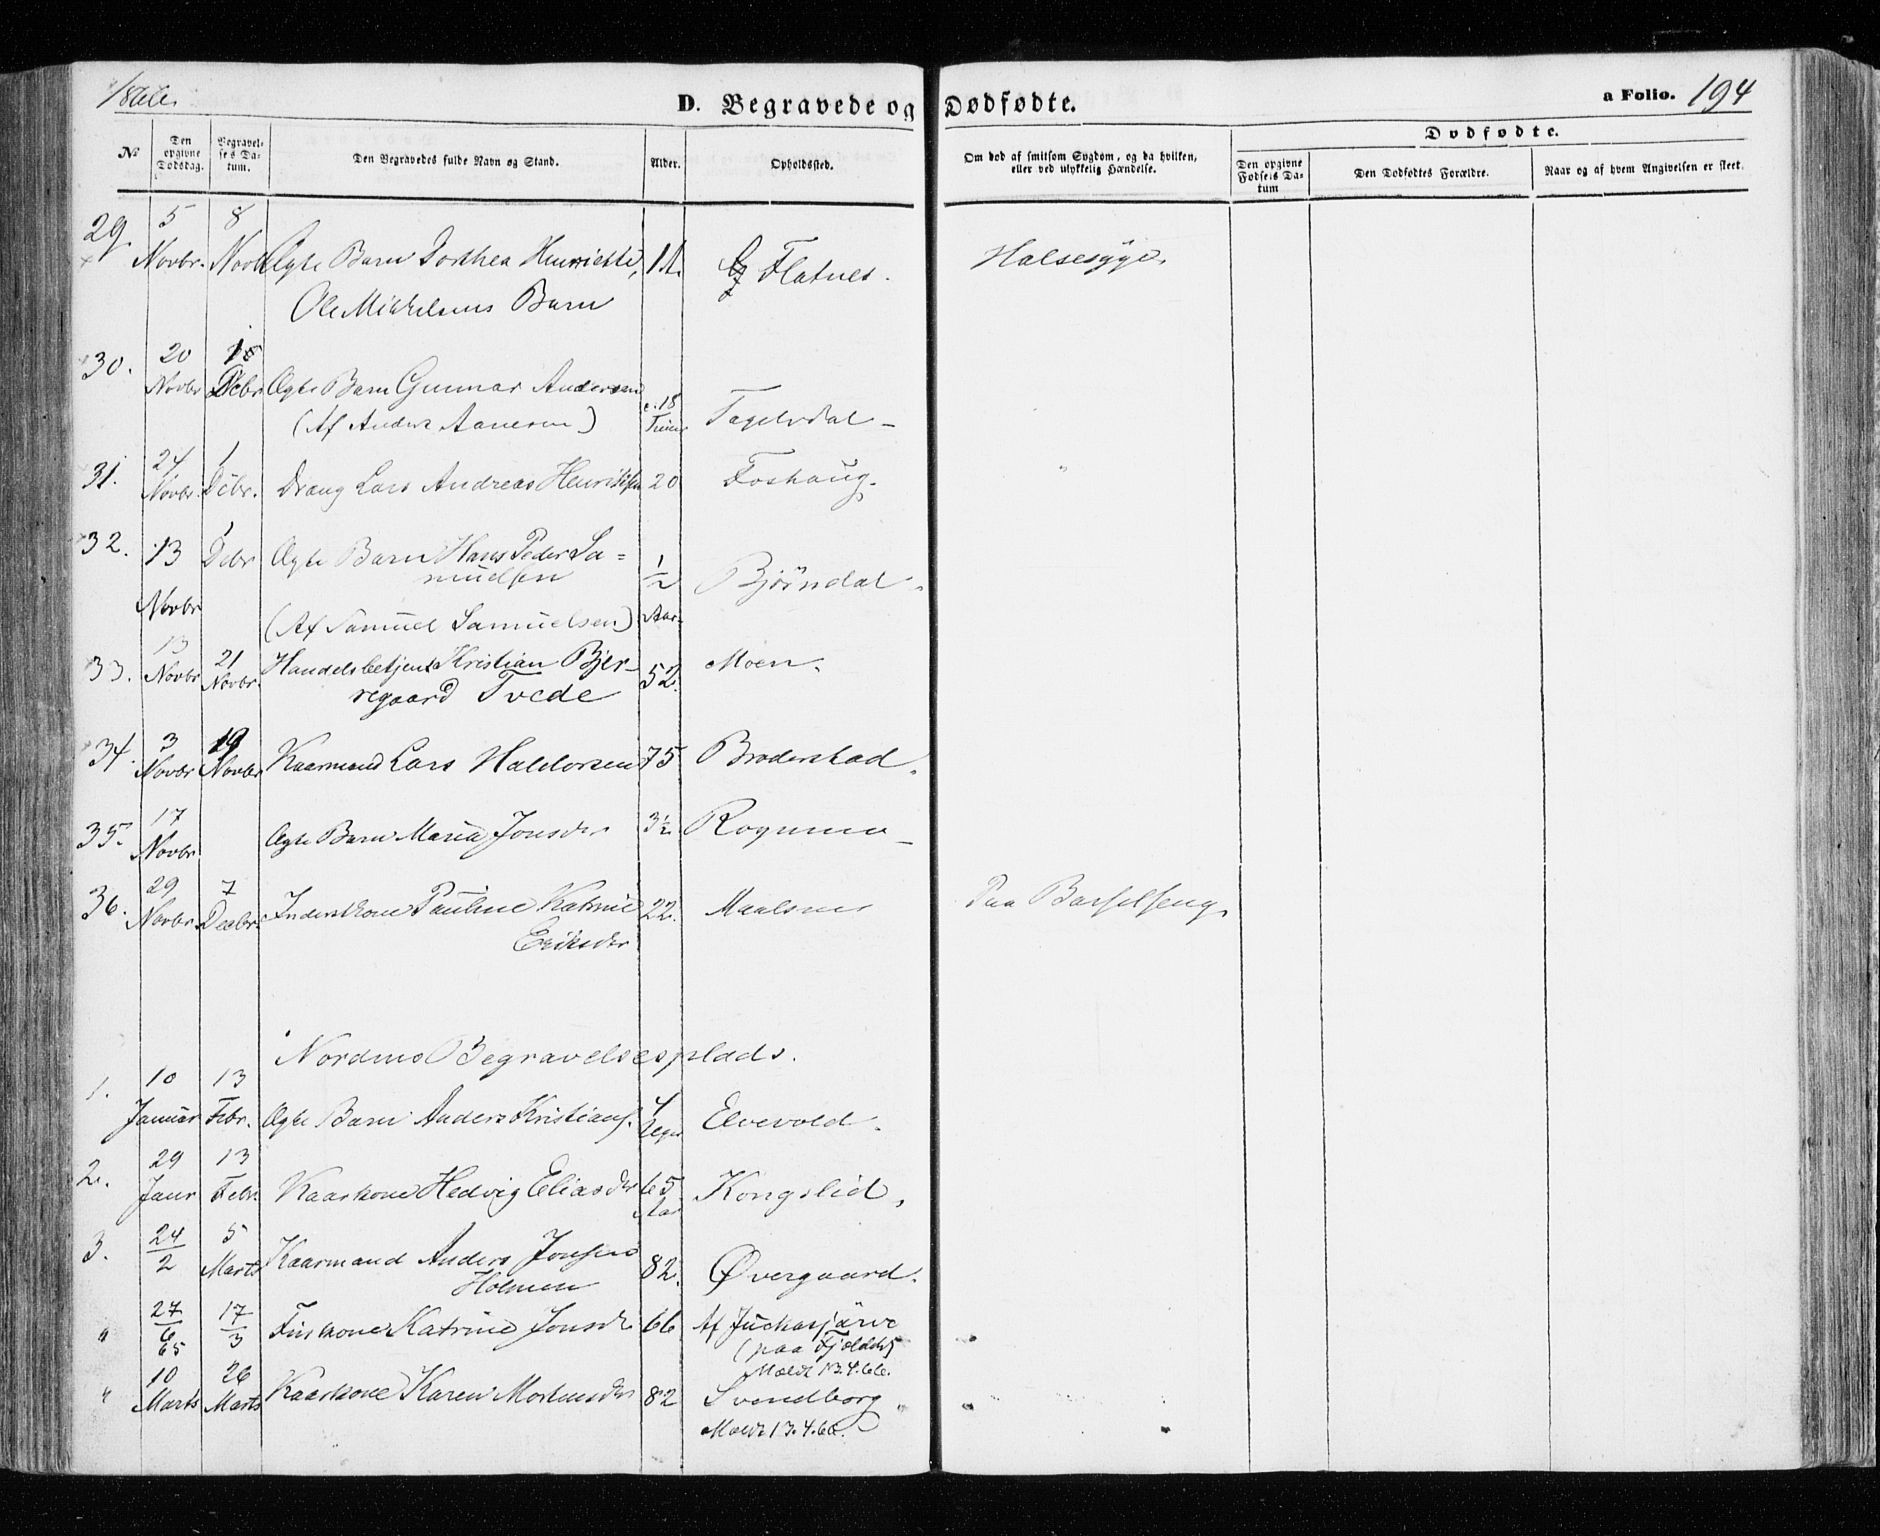 1866.
D. Begravede og Dødfødte.
a Folio. 194
№
Den opgivne Dødsdag.
Begravelses Datum.
Den Begravedes fulde Navn og Stand.
Alder.
Opholdssted.
Om død af smitsom Sygdom, og da hvilken, eller ved ulykkelig Hændelse.
Dødfødte.
Den opgivne Fødsels Datum
Den Dødfødtes Forældre.
Naar og af hvem Angivelsen er skeet.
29. 5 Novbr. 8 Novbr Ægte Barn Dorthea Henriette, Flatnes. Halsesyge.
Ole Mikkelsens Barn
30. 20 Novbr 15 Debr Ægte Barn Gunnar Andersen c. 18
(Af Anders Aanesen) Tagelvdal
31. 24 Novbr. 1 Debr. Dreng Lars Andreas Henriksen 20 Foshaug. "
32. 13 Novbr 1 Debr Ægte Barn Hans Peder Sa=
muelsen 1/2 Aar. Bjørndal.
(Af Samuel Samuelsen)
33. 13 Novbr 21 Novbr. Handelsbetjent Kristian Bjer-
regaard Tvede 52. Moen.
34. 3 Novbr 19 Novbr Kaarmand Lars Haldorsen 75 Broderstad.
35. 17 Novbr Ægte Barn Maria Jonsdr 3½ Rognmo
36. 29 Novbr. 7 Decbr. Inderstkone Pauline Katrine 22. Maalsnes Paa Barselseng.
Eriksdr
Nordmo Begravelsesplads.
1. 10 Januar 13 Febr. Ægte Barn Anders Kristians. 4 Elvevold.
2. 29 Janr 13 Febr. Kaarkone Hedvig Eliasdr 65 Aar Kongslid.
3. 24/2 5 Marts Kaarmand Anders Jonsen
Holmen 82. Øvergaard.
" 27/6 65 17/3 Finkone Katrine Jonsdr 66 Af Juckasjärve
(paa Fjeldet)
Meldt 13.4.66.
" 10 Marts 26 Marts Kaarkone Karen Mortensdr 82 Svendborg
Meldt 13.4.66.